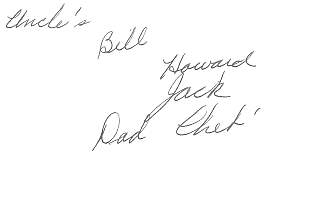 Uncle's
Bill
Howard
Jack
Dad Chet'